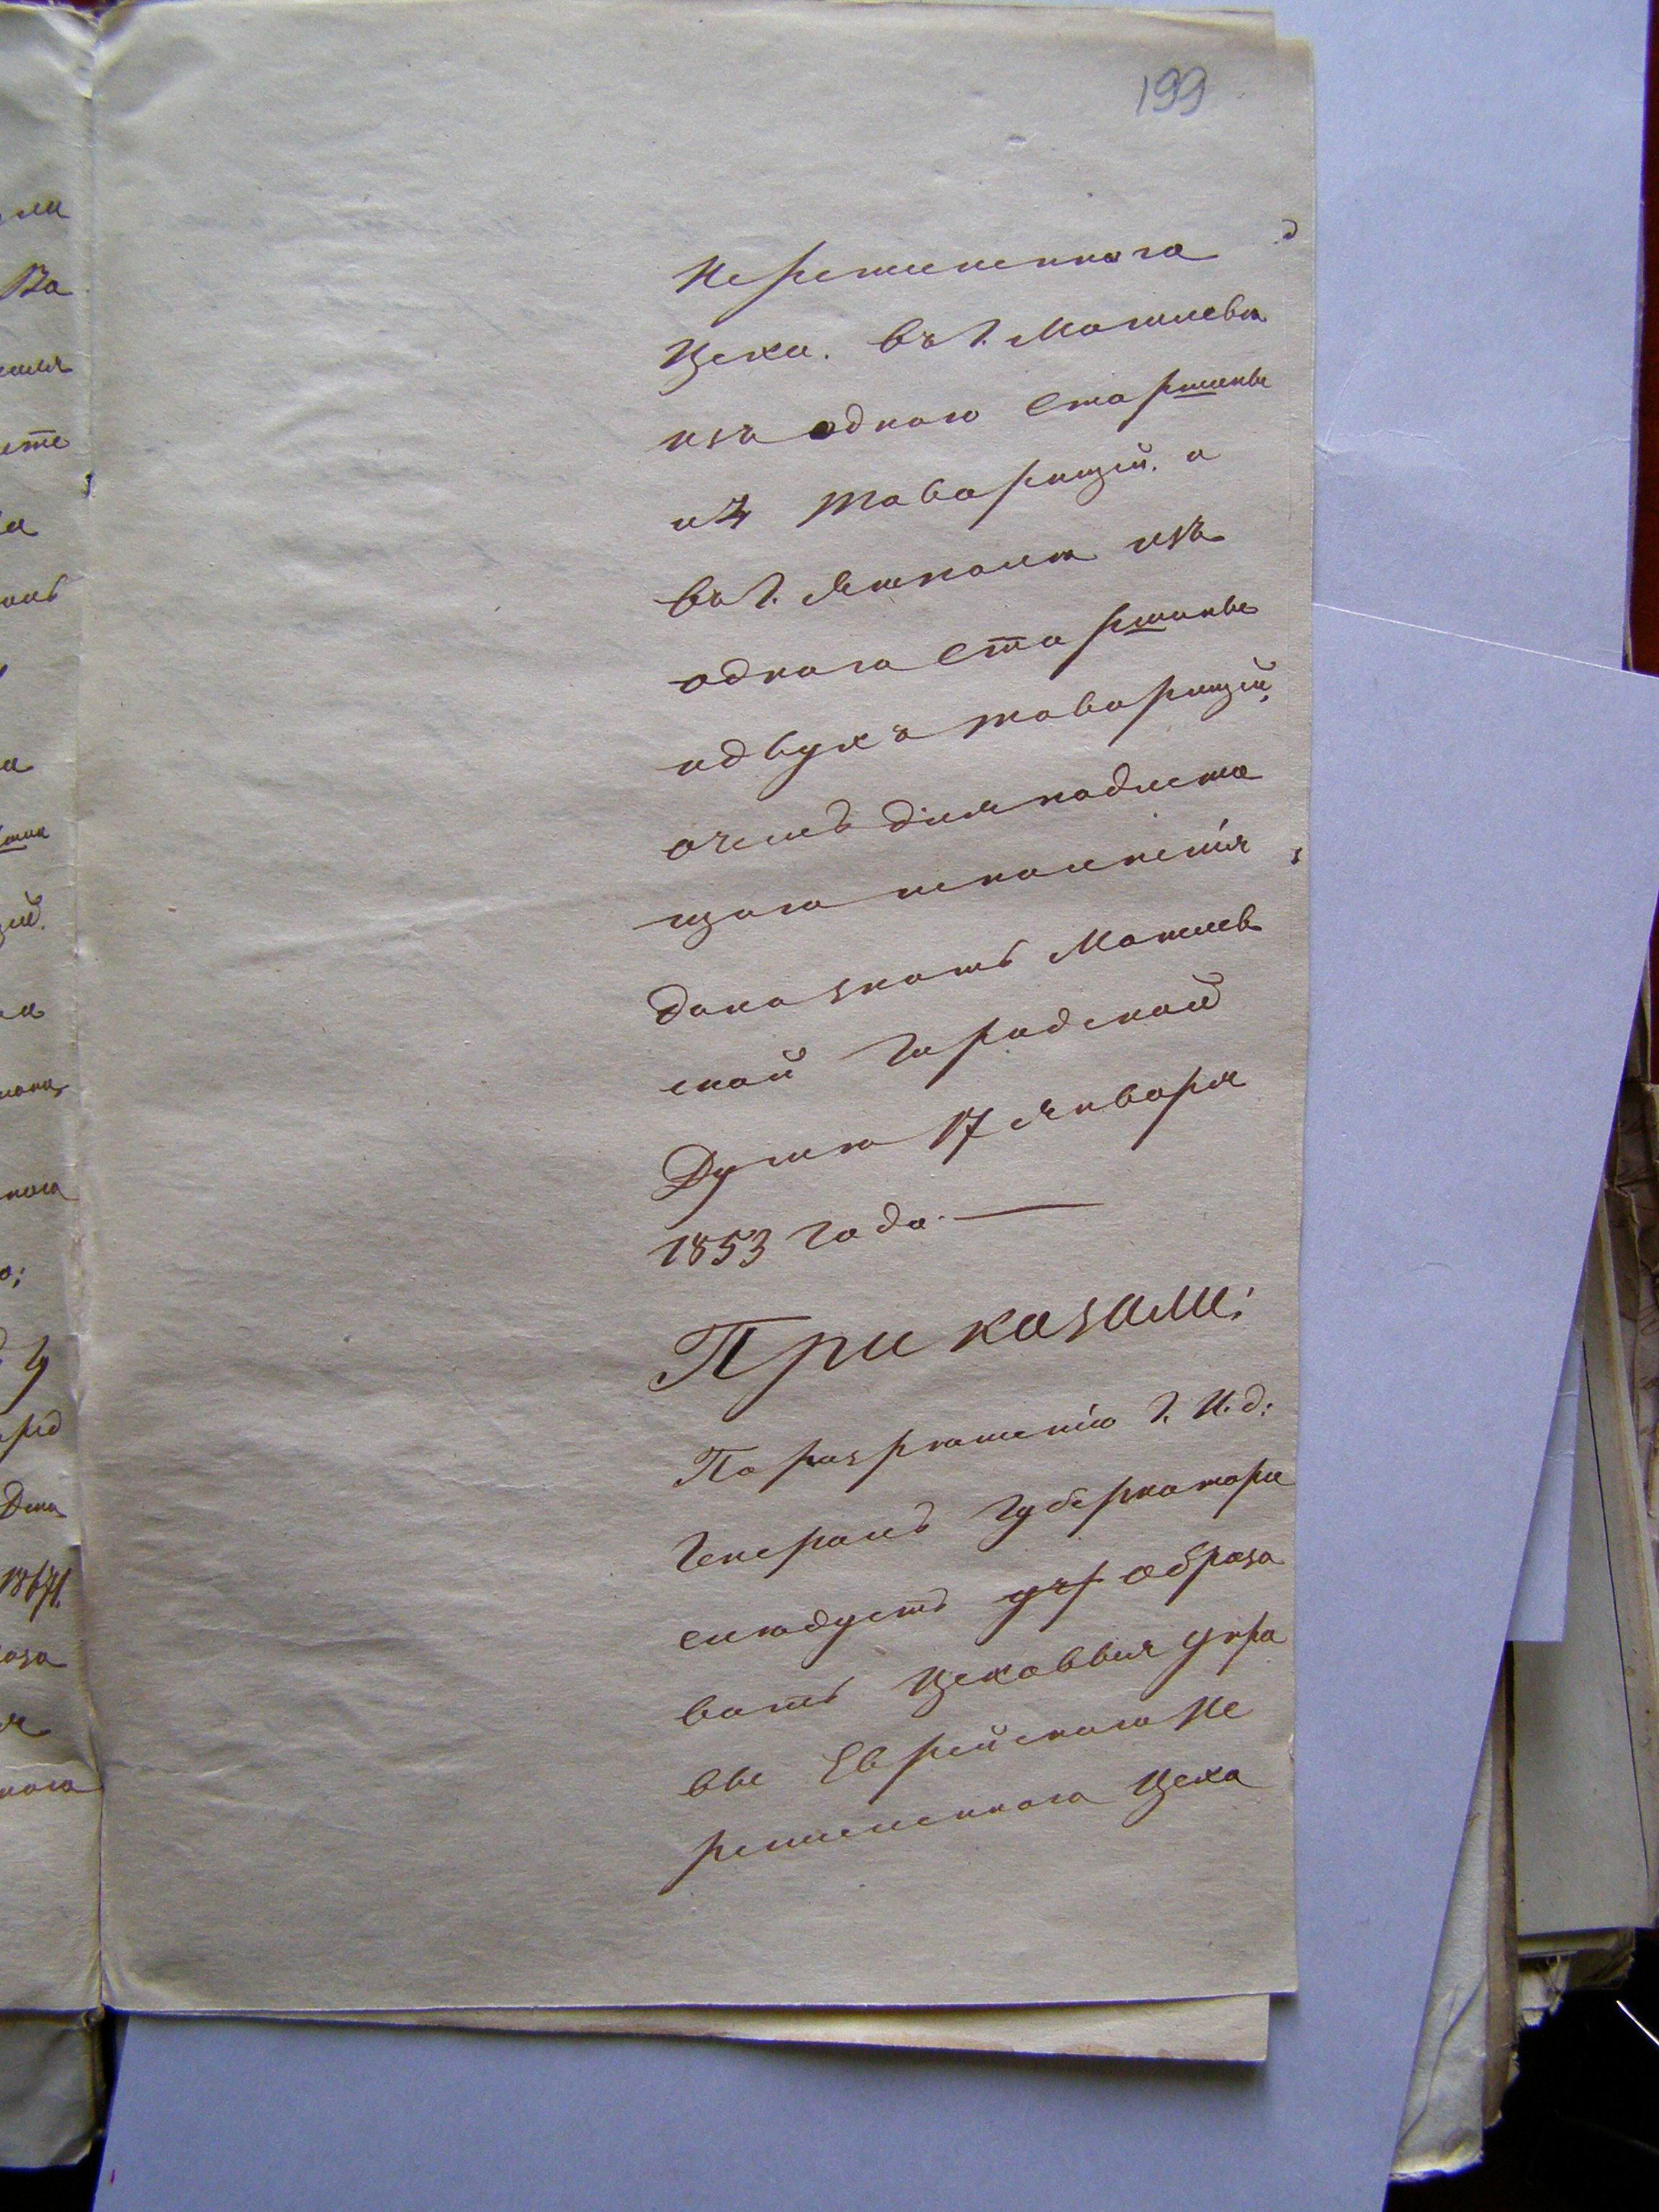 199
Неремесленнаго
Цеха. въ г. Могилевѣ
изъ одного Старшины
и 4 товарищей. а
въ г. Ямполѣ изъ
одного Старшины
и двухъ товарищей,
о чемъ для надлежа
щаго исполненія
дано знать Могилев
ской Городской
Думѣ 17 Января
1853 года. —
Приказали:
По разрѣшенію Г. И. д:
Генералъ Губернатора
слѣдуетъ учр образо
вать Цеховыя Упра
вы Еврейскаго Не
ремесленнаго Цеха